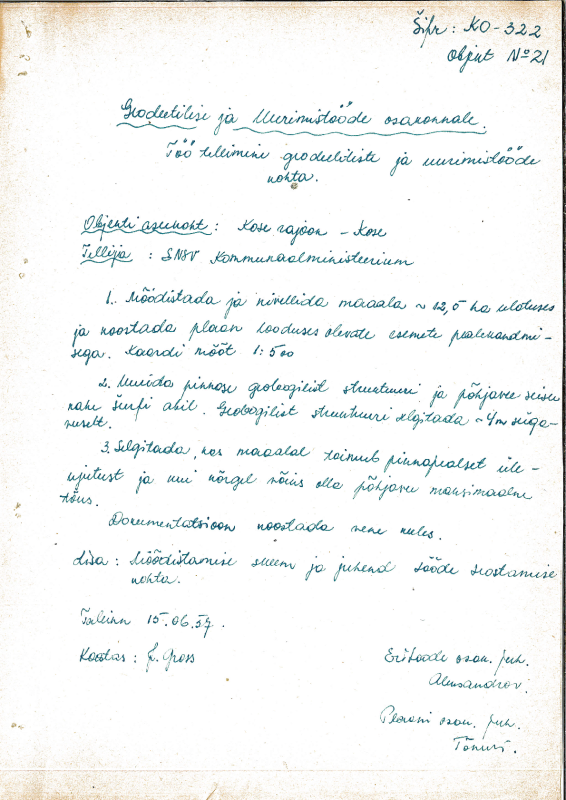 Šifr: KO-322
Objekt № 21
Geodeetilise ja Uurimistööde osakonnale.
Töö tellimine geodeetiliste ja uurimistööde
kohta.
Objekti asukoht: Kose rajoon - Kose
Tellija : ENSV Kommunaalministeerium
1. Mõõdistada ja nivellida maaala ~ 12,0 ha ulatuses
ja koostada plaan looduses olevate esemete pealekandmi-
sega. Kaardi mõõt 1:500
2. Uurida pinnase geoloogilist struktuuri ja põhjavee seisu
kahe šurfi abil. Geoloogilist struktuuri selgitada ~ 4m süga-
vuselt.
3. Selgitada, kas maaalal toimub pinnapealset üle-
ujutust ja kui kõrgel võiks olla põhjavee maksimaalne
tõus.
Documentatsioon koostada vene keeles.
Lisa: Mõõdistamise skeem ja juhend tööde teostamise
kohta.
Talinn 15.06.57.
Koostas: Gross
Eritööde osak. juh.
Aleksandrov.
Plaani osak. juh.